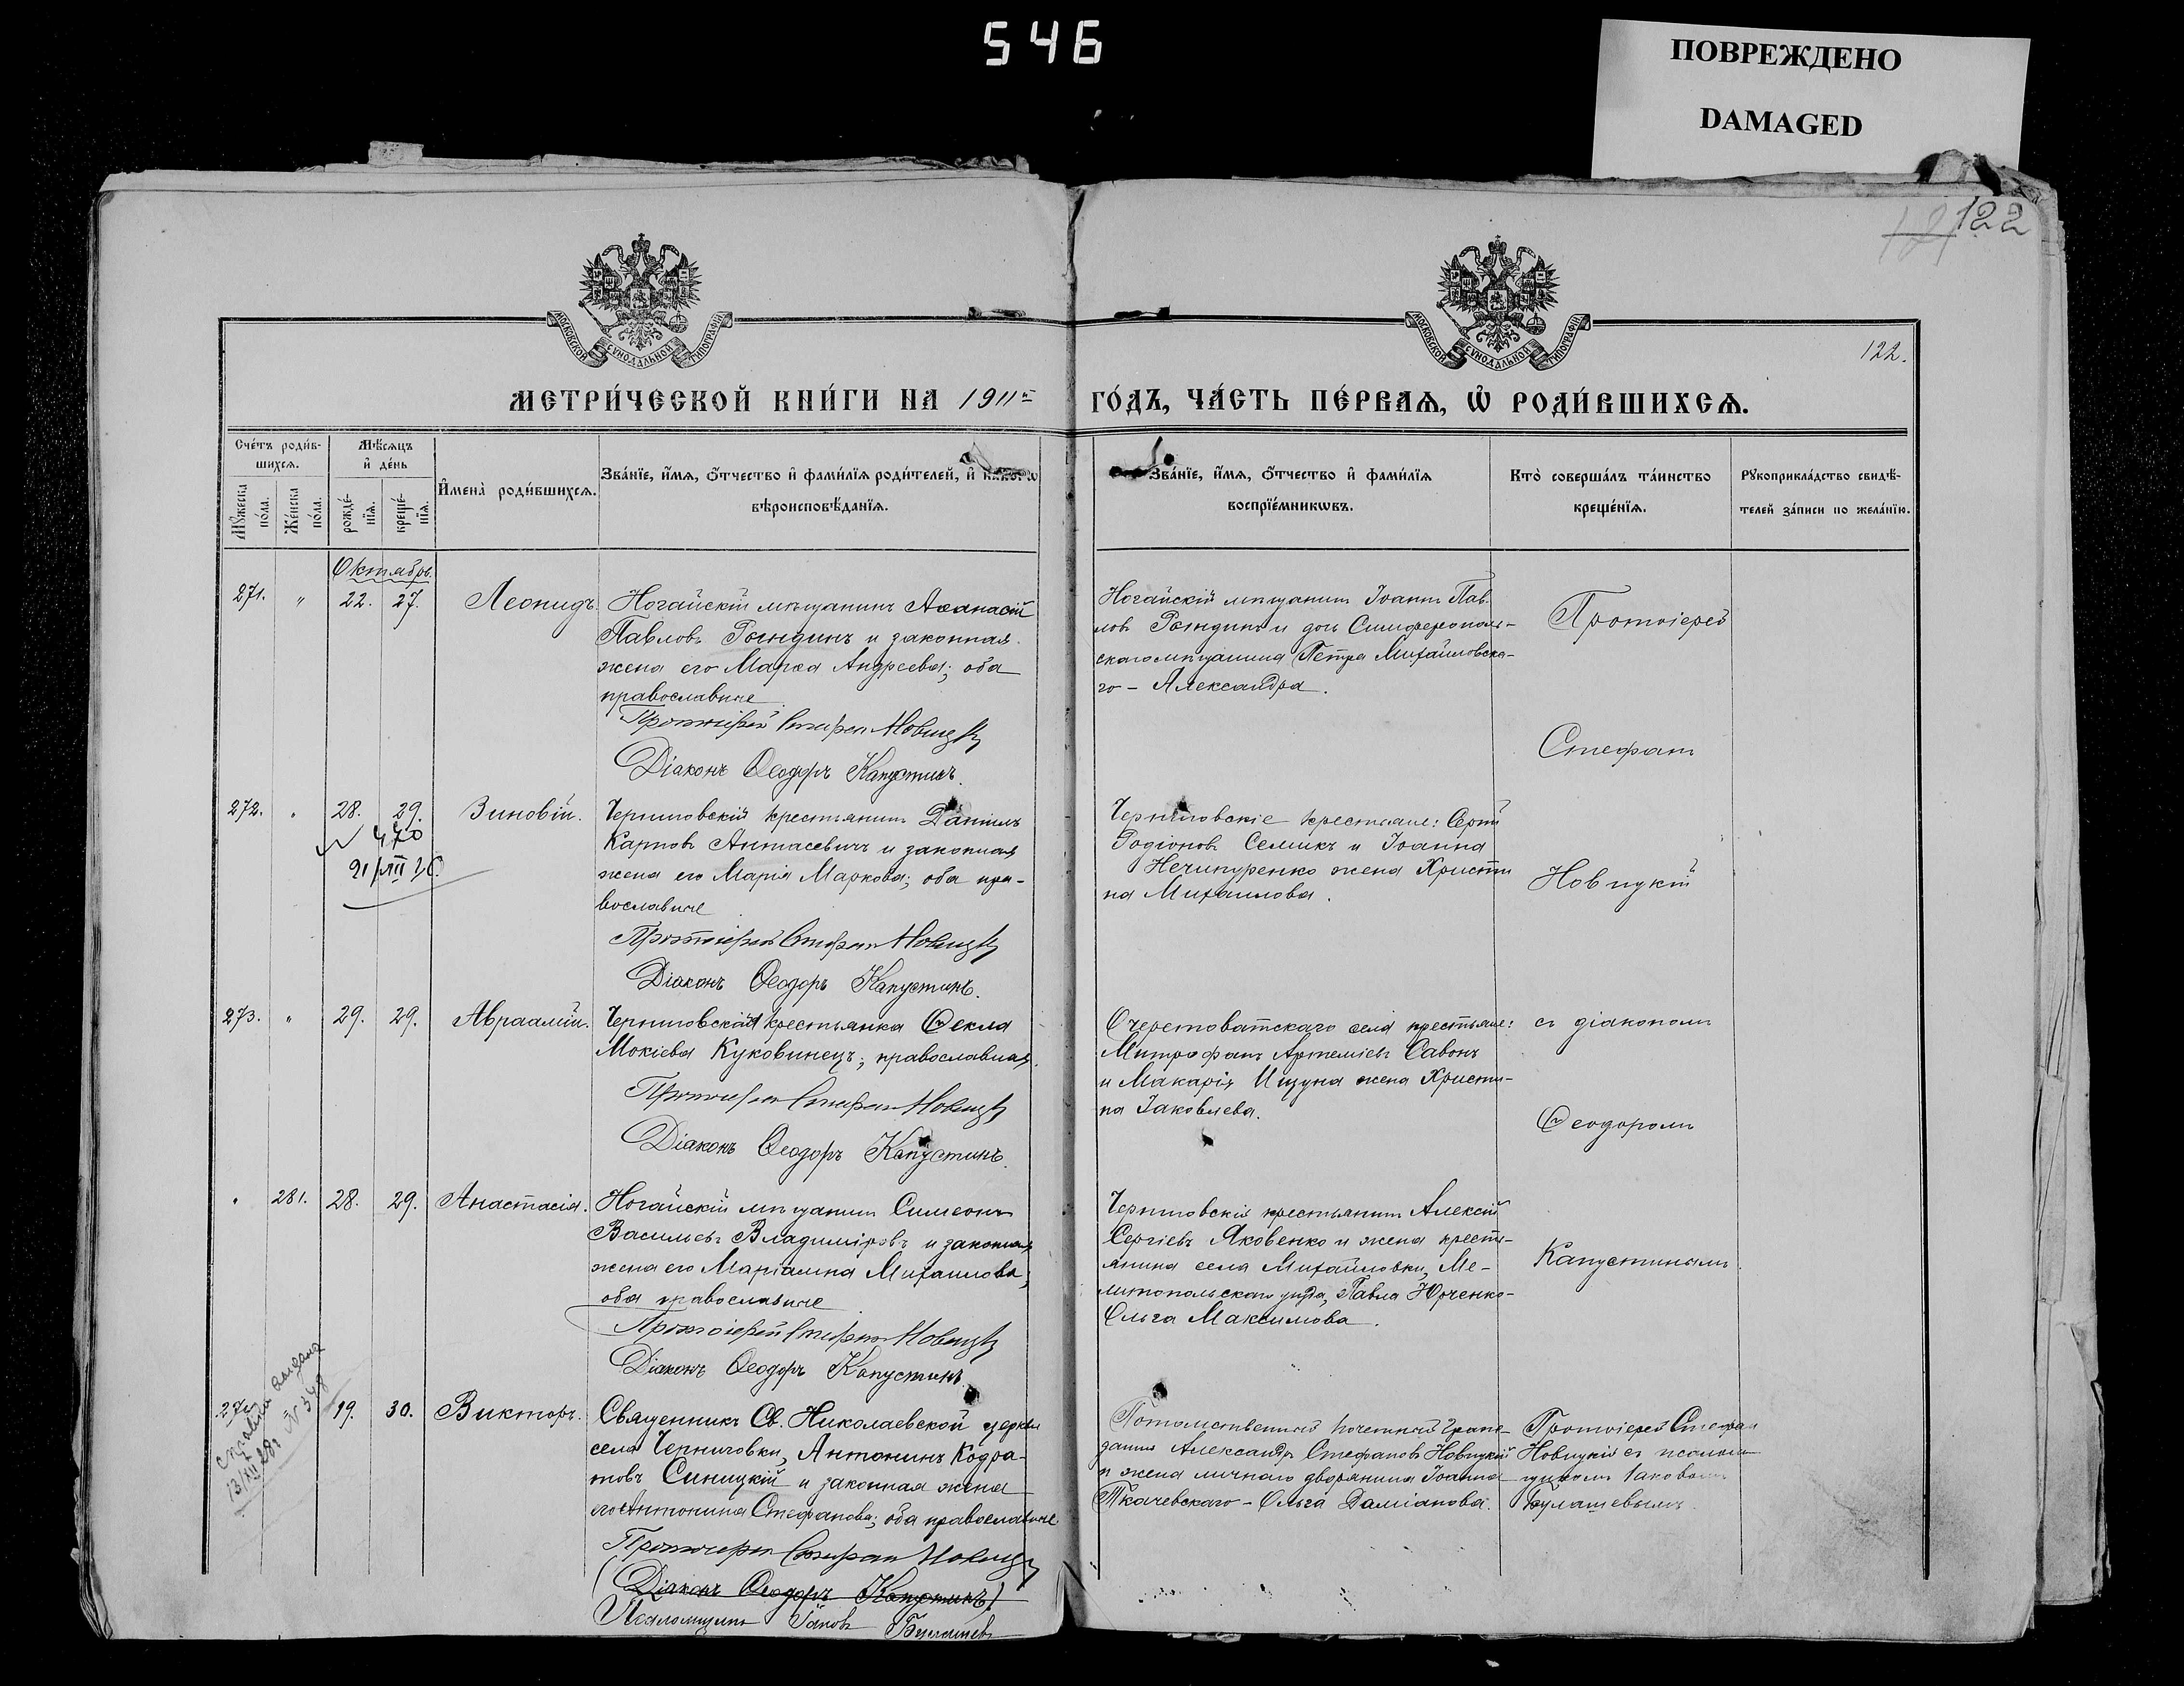 546
ПОВРЕЖДЕНО
DAMAGED
122
МОСКОВСКОЙ СѴНОДАЛЬНОЙ ТИПОГРАФІИ
МОСКОВСКОЙ СѴНОДАЛЬНОЙ ТИПОГРАФІИ
122.
МЕТРИ́ЧЕСКОЙ КНИ́ГИ НА 1911й
ГО́ДЪ, ЧА́СТЬ ПЕ́РВАѦ, Ѡ҆ РОДИ́ВШИХСѦ.
Сче́тъ роди́вшихсѧ.
Мꙋ́жеска по́ла.
Же́нска по́ла.
Мѣ́сѧцъ и҆ де́нь
рожде́нїѧ.
креще́нїѧ.
И҆мена̀ роди́вшихсѧ.
Зва́нїе, и҆́мѧ, ѻ҆́тчество и҆ фами́лїѧ роди́телей, и҆ како́гѡ
вѣроисповѣ́данїѧ.
Зва́нїе, и҆́мѧ, ѻ҆́тчество и҆ фами́лїѧ
воспрїе́мникѡвъ.
Кто̀ соверша́лъ та́инство
креще́нїѧ.
Рꙋкоприкла́дство свидѣ́телей за́писи по жела́нїю.
Октябрь.
271. " 22. 27. Леонидъ.
Ногайскій мѣщанинъ Аѳанасій
Павловъ Рындинъ и законная
жена его Марѳа Андреева; оба
православные
Протоіерей Стефан Новицкій
Діаконъ Ѳеодоръ Капустинъ.
Ногайскій мѣщанинъ Іоаннъ Пав-
ловъ Рындинъ и дочь Симферополь-
скаго мѣщанина Петра Михайловска-
го - Александра.
Протоіерей
Стефанъ
Новицкій
съ діакономъ
Ѳеодоромъ
Капустинымъ.
272. " 28. 29. Зиновій.
№ 470
Черниговскій крестьянинъ Даніилъ
Карповъ Антасевичъ и законная
жена его Марія Маркова; оба пра-
вославные
Протоіерей Стефан Новицкій
Діаконъ Ѳеодоръ Капустинъ.
Черниговскіе крестьяне: Сергій
Родіоновъ Семикъ и Іоанна
Нечипуренко жена Христи
на Михаилова.
273. " 29. 29. Авраамій.
Черниговская крестьянка Ѳекла
Мокіева Куковинецъ; православная.
Протоіерей Стефан Новицкій
Діаконъ Ѳеодоръ Капустинъ.
Очеретоватскаго села крестьяне:
Митрофанъ Артеміевъ Савонъ
и Макарія Ищуна жена Христи-
на Іаковлева.
" 281. 28. 29. Анастасія.
Ногайскій мѣщанинъ Симеонъ
Васильевъ Владиміровъ и законная
жена его Маріамна Михаилова;
оба православные
Протоіерей Стефан Новицкій
Діаконъ Ѳеодоръ Капустинъ.
Черниговскій крестьянинъ Алексій
Сергіевъ Яковенко и жена кресть-
янина села Михайловки, Ме-
литопольскаго уѣзда, Павла Юрченко-
Ольга Максимова.
274 19. 30. Викторъ.
Справка выдана
13/XII 28г № 548
Священникъ Св. Николаевской церкви
села Черниговки, Антонинъ Кодра-
товъ Синицкій и законная жена
его Антонина Стефанова; оба православные
Протоіерей Стефан Новицкій
(Діаконъ Ѳеодоръ Капустинъ)
Псаломщикъ Іаковъ Булашевъ
Потомственный почетный граж-
данинъ Александръ Стефановъ Новицкій
и жена личнаго дворянина Іоанна
Ткачевскаго - Ольга Даміанова.
Протоіерей Стефан
Новицкій съ псалом-
щикомъ Іаковомъ
Булашевымъ.